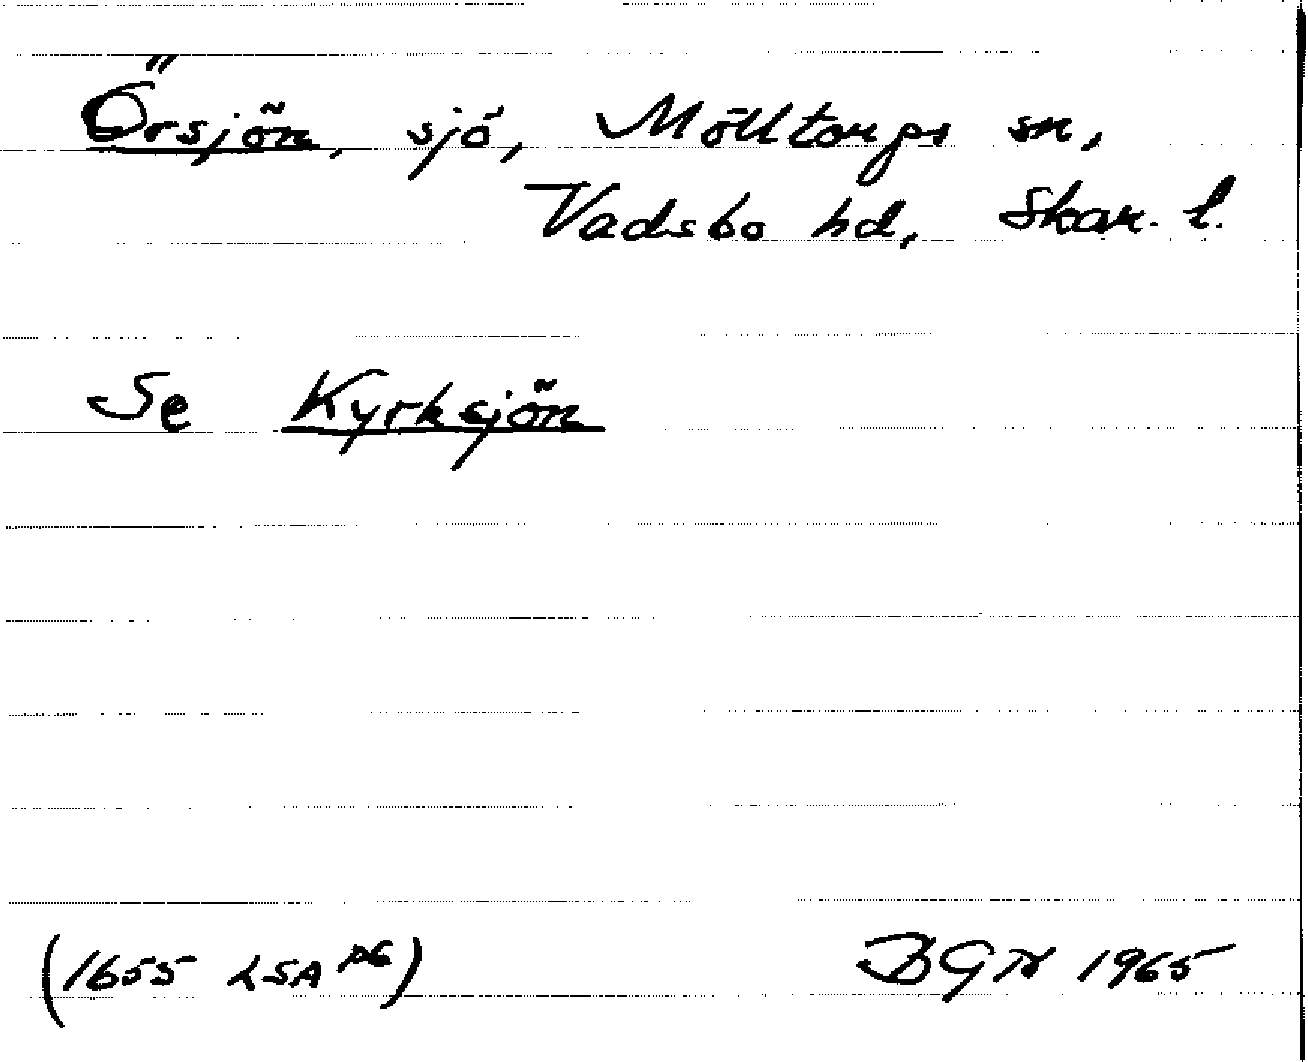 Örsjön, sjö, Mölltorps sn,
Vadsbo hd, Skar. l.
Se Kyrksjön
(1655 LSA P6) BGN 1965